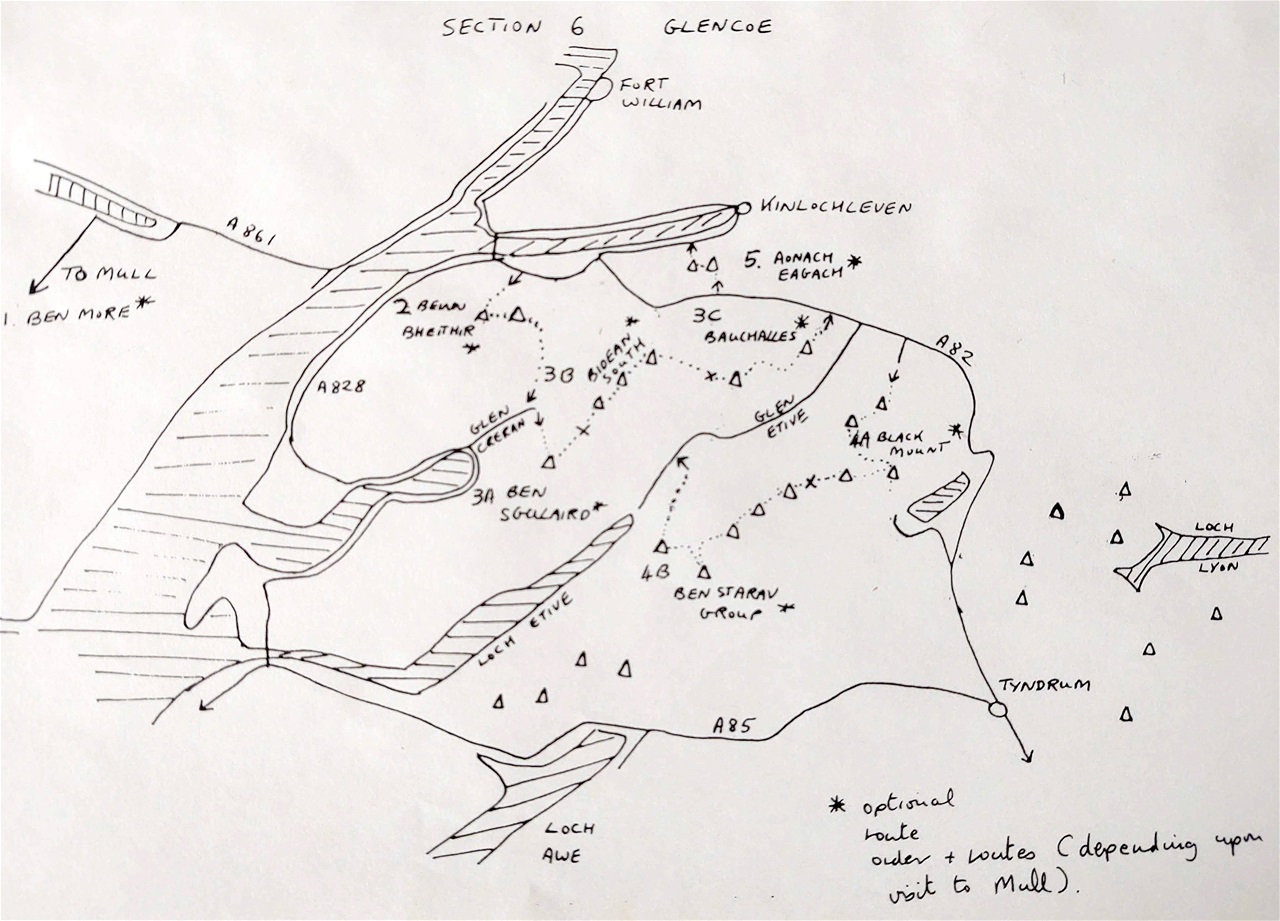 SECTION 6 GLENCOE
FORT
WILLIAM
KINLOCHLEVEN
A861
TO MULL
1. BEN MORE *
5. AONACH
EAGACH *
2 BEINN
BHEITHIR
*
3C
BAUCHALLES *
BIDEAN
SOUTH *
3B
A82
A828
GLEN
CRERAN
GLEN
ETIVE
4A BLACK
MOUNT *
3A BEN
SGULAIRD *
LOCH
LYON
4B
BEN STARAV
GROUP *
LOCH ETIVE
TYNDRUM
A85
LOCH
AWE
* optional
route
order + routes (depending upon
visit to Mull).